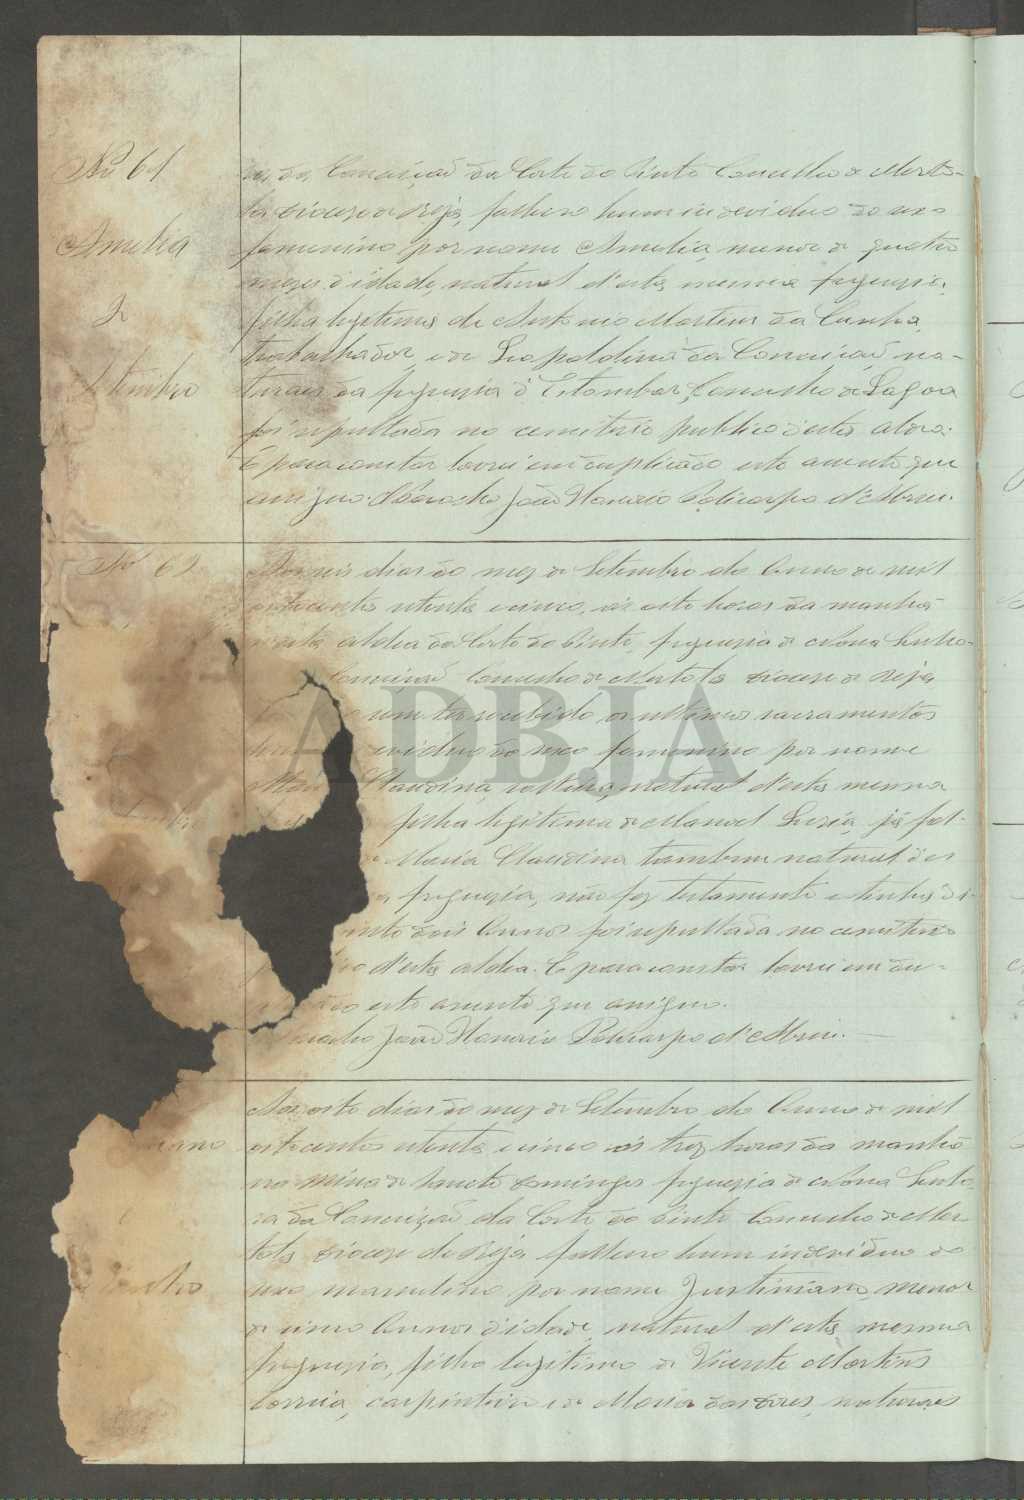 Nº 61
Amelia
Setembro
ra da Conceição da Corte do Pinto Concelho de Merto-
la Diocese de Beja, falleceu hum individuo do sexo
femenino por nome Amelia, menor de quatro
mezes d'idade, natural d'esta mesma freguezia,
filha legitima de Antonio Martins da Cunha,
trabalhador, e de Leopoldina da Conceição, na-
turaes da freguezia d'Estombar, Concelho de Lagoa
foi sepultada no cemiterio publico d'esta aldea.
E para constar lavrei em duplicado este assento que
assigno. O Parocho João Honorio Policarpo d'Abreu.
Nº 62
Aos seis dias do mez de Setembro do Anno de mil
oitocentos oitenta e cinco, ás oito horas da manhã
nesta aldea da Corte do Pinto, freguezia de Nossa Senho-
Conceição Concelho de Mertola Diocese de Beja
sem ter recebido os ultimos sacramentos
individuo do sexo femenino por nome
Maria Claudina, solteira, natural d'esta mesma
filha legitima de Manoel Luzia, já fal-
de Maria Claudina tambem natural des
freguezia, não fez testamento
dois Annos foi sepultada no cemiterio
d'esta aldea. E para constar lavrei em du-
este assento que assigno.
João Honorio Policarpo d'Abreu.
Aos oito dias do mez de Setembro do Anno de mil
oitocentos oitenta e cinco ás trez horas da manhã
na Mina de Sancto Domingos freguezia de Nossa Senho-
ra da Conceição da Corte do Pinto Concelho de Mer
tola Diocese de Beja falleceu hum individuo do
sexo masculino por nome Justiniano, menor
de cinco Annos d'idade, natural d'esta mesma
freguezia, filho legitimo de Vicente Martins
Correia, carpinteiro e de Maria das Dores, naturaes
ADBJA